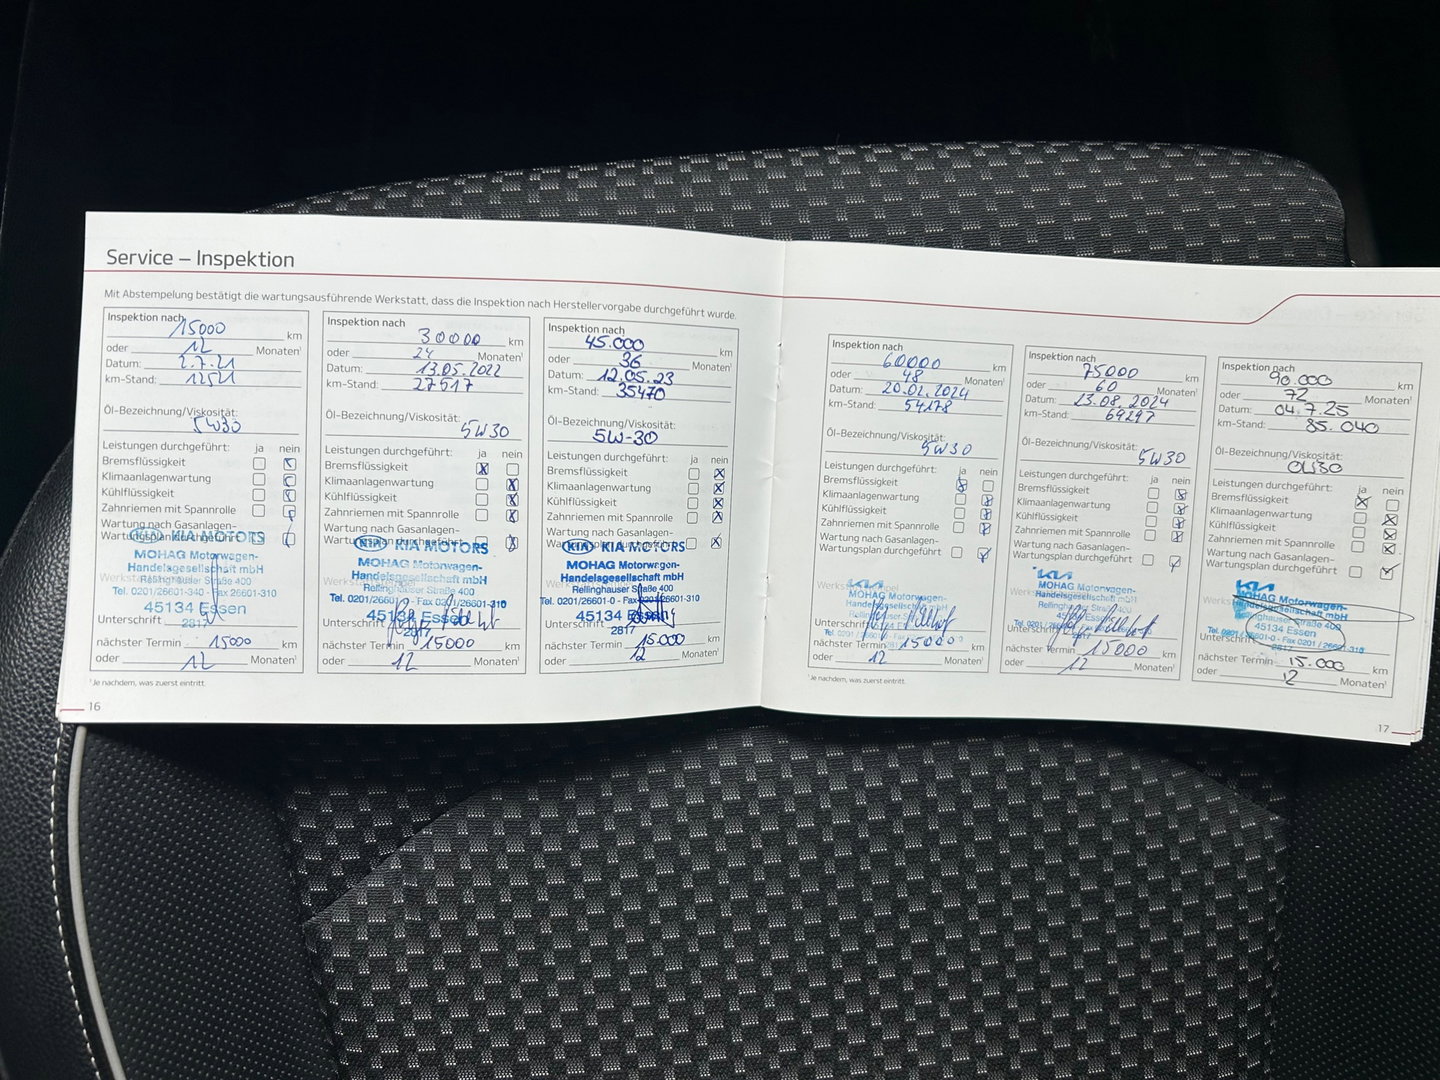 Service – Inspektion
Mit Abstempelung bestätigt die wartungsausführende Werkstatt, dass die Inspektion nach Herstellervorgabe durchgeführt wurde.
Inspektion nach 15000 km
oder 12 Monaten¹
Datum: 2.7.21
km-Stand: 12521
Öl-Bezeichnung/Viskosität:
5W30
Leistungen durchgeführt: ja nein
Bremsflüssigkeit
Klimaanlagenwartung
Kühlflüssigkeit
Zahnriemen mit Spannrolle
Wartung nach Gasanlagen-
Wartungsplan durchgeführt
KIA MOTORS
MOHAG Motorwagen-
Handelsgesellschaft mbH
Rellinghauser Straße 400
Tel. 0201/26601-340 - Fax 26601-310
45134 Essen
2817
Unterschrift
nächster Termin 15000 km
oder 12 Monaten¹
¹Je nachdem, was zuerst eintritt.
16
Inspektion nach
30000 km
oder 24 Monaten¹
Datum: 13.05.2022
km-Stand: 27517
Öl-Bezeichnung/Viskosität:
5W30
Leistungen durchgeführt: ja nein
Bremsflüssigkeit X
Klimaanlagenwartung X
Kühlflüssigkeit X
Zahnriemen mit Spannrolle X
Wartung nach Gasanlagen-
Wartungsplan durchgeführt X
KIA MOTORS
MOHAG Motorwagen-
Handelsgesellschaft mbH
Rellinghauser Straße 400
Tel. 0201/26601-0 - Fax 0201/26601-310
45134 Essen
2817
Unterschrift
nächster Termin 15000 km
oder 12 Monaten¹
Inspektion nach
45.000 km
oder 36 Monaten¹
Datum: 12.05.23
km-Stand: 35470
Öl-Bezeichnung/Viskosität:
5W-30
Leistungen durchgeführt: ja nein
Bremsflüssigkeit X
Klimaanlagenwartung X
Kühlflüssigkeit X
Zahnriemen mit Spannrolle X
Wartung nach Gasanlagen-
Wartungsplan durchgeführt X
KIA MOTORS
MOHAG Motorwagen-
Handelsgesellschaft mbH
Rellinghauser Straße 400
Tel. 0201/26601-0 - Fax 0201/26601-310
45134 Essen
2817
Unterschrift
nächster Termin 15.000 km
oder 12 Monaten¹
Inspektion nach
60000 km
oder 48 Monaten¹
Datum: 20.02.2024
km-Stand: 54178
Öl-Bezeichnung/Viskosität:
5W30
Leistungen durchgeführt: ja nein
Bremsflüssigkeit X
Klimaanlagenwartung X
Kühlflüssigkeit X
Zahnriemen mit Spannrolle X
Wartung nach Gasanlagen-
Wartungsplan durchgeführt X
KIA
MOHAG Motorwagen-
Handelsgesellschaft mbH
nächster Termin 15000
oder 12
¹Je nachdem, was zuerst eintritt.
Inspektion nach
75000 km
oder 60 Monaten¹
Datum: 23.08.2024
km-Stand: 69297
Öl-Bezeichnung/Viskosität:
5W30
Leistungen durchgeführt: ja nein
Bremsflüssigkeit X
Klimaanlagenwartung X
Kühlflüssigkeit X
Zahnriemen mit Spannrolle X
Wartung nach Gasanlagen-
Wartungsplan durchgeführt X
KIA
MOHAG Motorwagen-
Handelsgesellschaft mbH
Rellinghauser Straße 400
45134 Essen
nächster Termin 15000 km
oder 12 Monaten¹
Inspektion nach
90.000 km
oder 72 Monaten¹
Datum: 04.7.25
km-Stand: 85.040
Öl-Bezeichnung/Viskosität:
0W30
Leistungen durchgeführt: ja nein
Bremsflüssigkeit X
Klimaanlagenwartung X
Kühlflüssigkeit X
Zahnriemen mit Spannrolle X
Wartung nach Gasanlagen-
Wartungsplan durchgeführt X
KIA
MOHAG Motorwagen-
Handelsgesellschaft mbH
Rellinghauser Straße 400
45134 Essen
Tel. 0201 / 26601-0 - Fax 0201 / 26601-310
2817
Unterschrift
nächster Termin 15.000 km
oder 12 Monaten¹
17